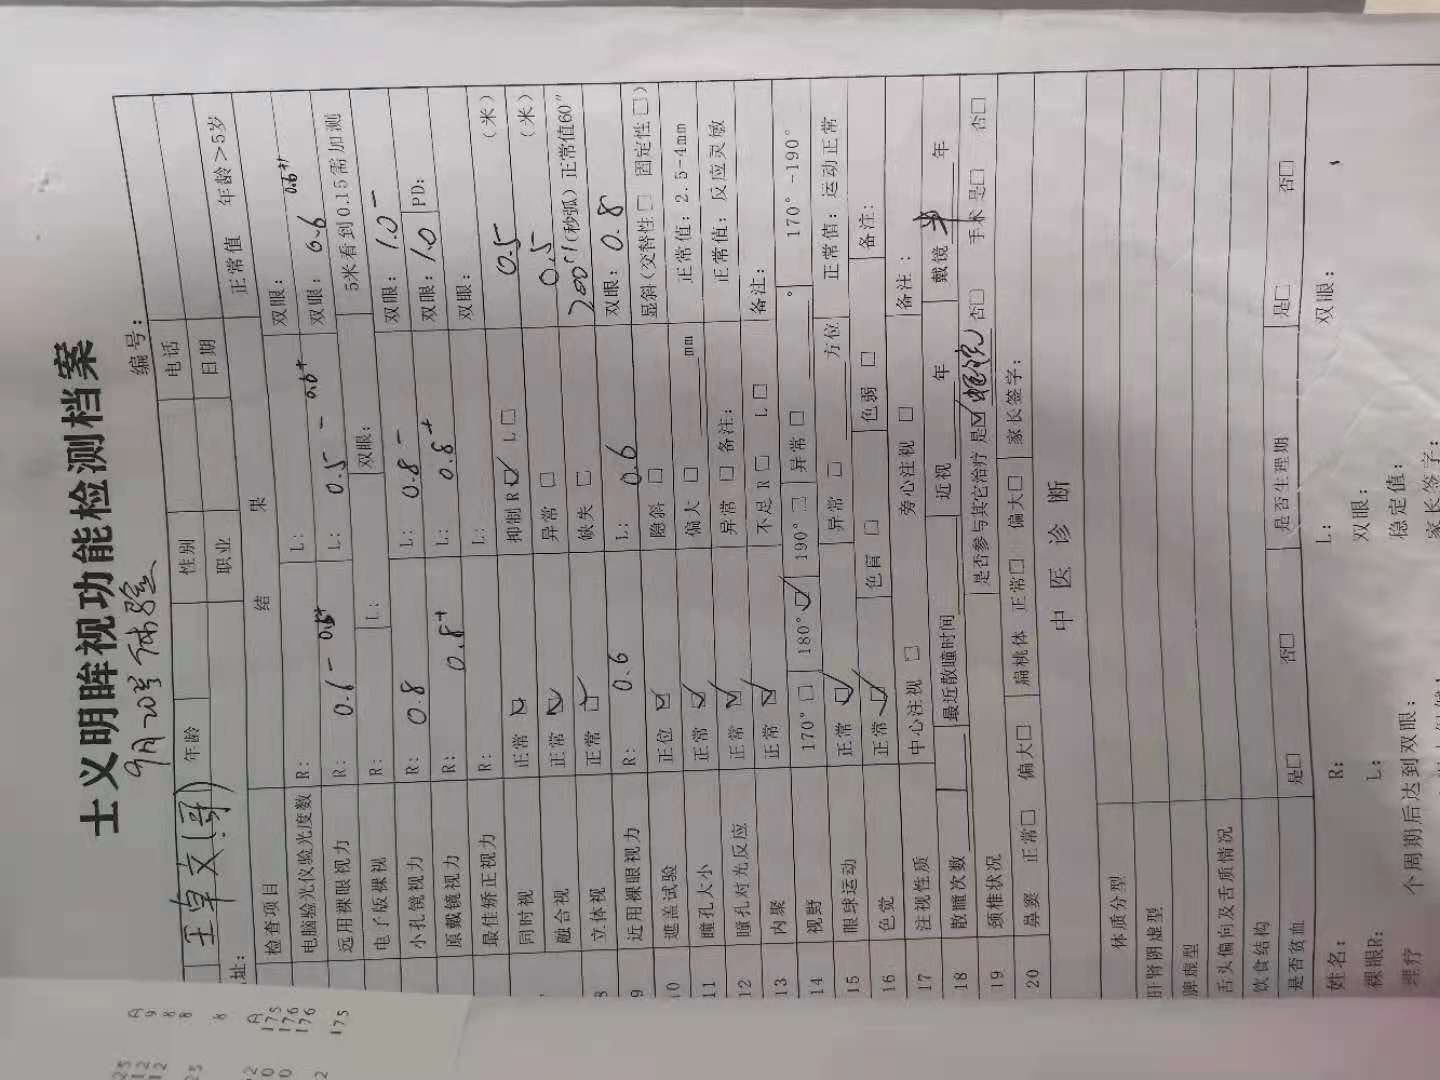 士义明眸视功能检测档案
9月20号体验
编号：
王卓文(哥) 年龄 性别 电话
址： 职业 日期
检查项目 结 果 正常值 年龄>5岁
电脑验光仪验光度数 R： L： 双眼：
远用裸眼视力 R： 0.6- L： 0.5- 0.6+ 双眼： 0.6 0.6++
电子版裸视 R： L： 双眼： 5米看到0.15需加测
小孔镜视力 R： 0.8 L： 0.8- 双眼： 1.0-
原戴镜视力 R： 0.8+ L： 0.8+ 双眼： 1.0 PD：
最佳矫正视力 R： L： 双眼：
同时视 正常☑ 抑制R☑ L□ 0.5 （米）
融合视 正常☑ 异常□ 0.5 （米）
8 立体视 正常☑ 缺失□ 200"(秒弧) 正常值60"
9 近用裸眼视力 R： 0.6 L： 0.6 双眼： 0.8
10 遮盖试验 正位☑ 隐斜□ 显斜（交替性□ 固定性□）
11 瞳孔大小 正常☑ 偏大□ mm 正常值：2.5-4mm
12 瞳孔对光反应 正常☑ 异常□ 备注： 正常值：反应灵敏
13 内聚 正常☑ 不足R□ L□ 备注：
14 视野 170°□ 180°☑ 190°□ 异常□ ° 170°-190°
15 眼球运动 正常☑ 异常□ 方位 正常值：运动正常
16 色觉 正常☑ 色盲□ 色弱□ 备注：
17 注视性质 中心注视□ 旁心注视□ 备注：
18 散瞳次数 最近散瞳时间 近视 年 戴镜 半 年
19 颈椎状况 是否参与其它治疗 是☑ 否□ 手术 是□ 否□
20 鼻窦 正常□ 偏大□ 扁桃体 正常□ 偏大□ 家长签字：
中 医 诊 断
体质分型
肝肾阴虚型
脾虚型
舌头偏向及舌质情况
饮食结构
是否贫血 是□ 否□ 是否生理期 是□ 否□
姓名： R： L： 双眼：
裸眼R： L： 双眼：
理疗 个周期后达到双眼： 稳定值：
家长签字：